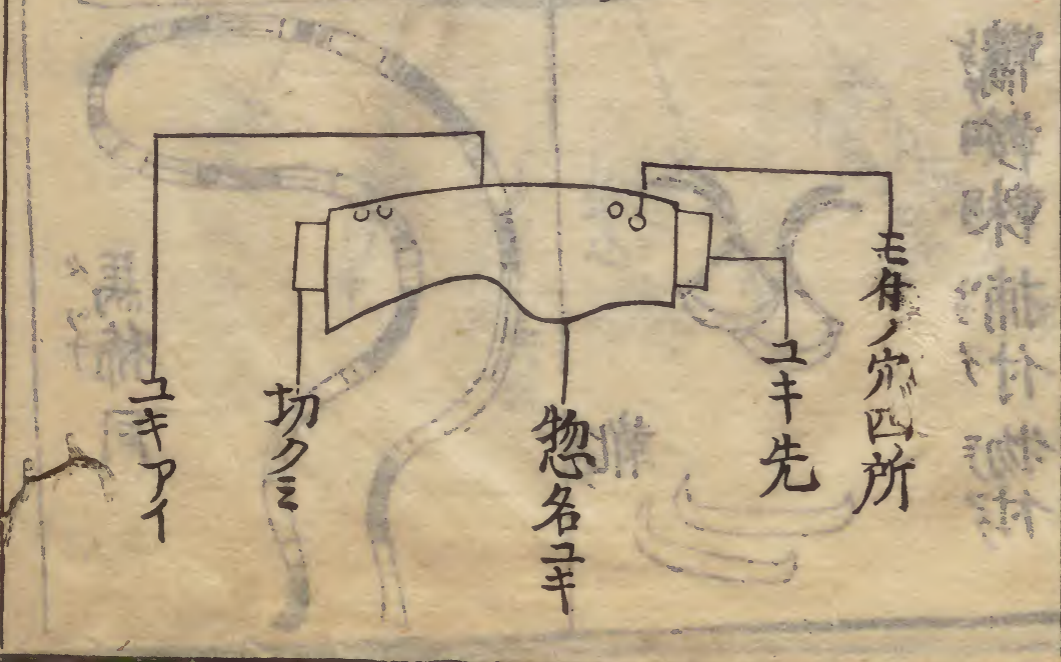 モ付ノ穴四所
ユキ先
惣名ユキ
切クミ
ユキアイ